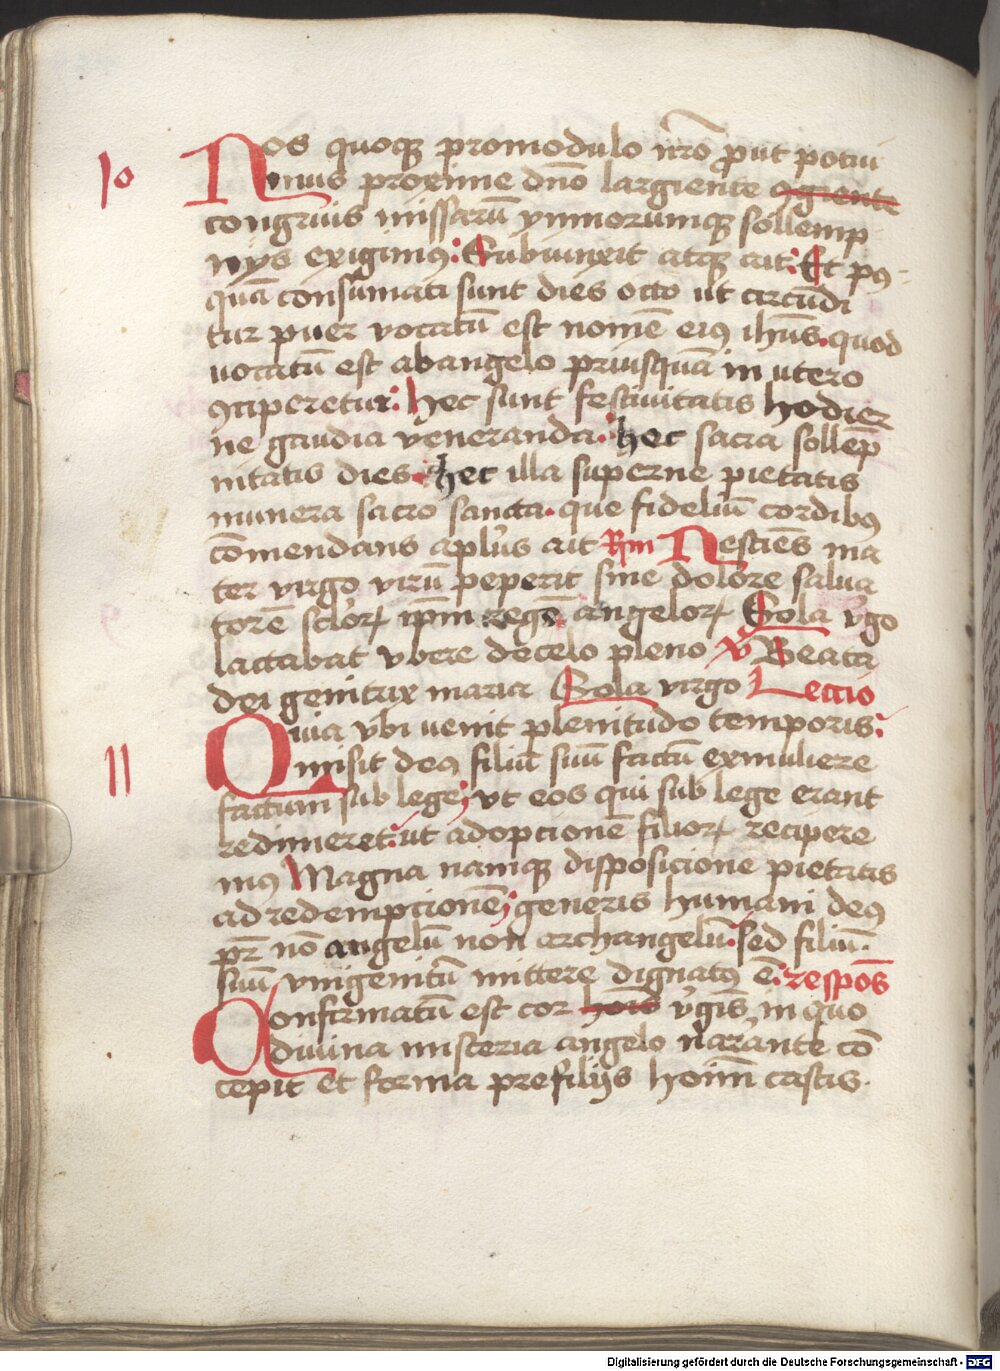 10 Nos quoque promodulo nr̄o prout potui
mus proxime dn̄o largiente ꝯgiente
congruis missarū ymnorumque sollemp
nijs exigimus: Subiunxit atque ait: Et pꝰ-
quā consūmati sunt dies octo ut circūdi
tur puer vocatū est nomē eiꝰ ihūs. quod
uocatū est abangelo priusquā in utero
ꝯciperetur: Hec sunt festiuitatis hodier
ne gaudia veneranda. hec sacra sollēp
nitatis dies. hec illa superne pietatis
munera sacro sancta. que fideliū cordibꝰ
cōmendans aplūs ait Rm Nesciēs ma
ter virgo virū peperit sine dolore salua
torē sclorꝝ ipm regē angelorꝝ Sola vgo
lactabat vbere decelo pleno V Beata
dei genitrix maria Sola virgo Leccio
11 Quia vbi uenit plenitudo temporis:
misit deꝰ filiū suū factū exmuliere
factum sub lege; vt eos qui sub lege erant
redimeret: ut adopcionē filiorꝝ recipere
mꝰ Magna namque disposicione pietatis
ad redempcionē; generis humani deꝰ
pr̄ nō angelū non archangelū. sed filiū.
suū vnigenitū mittere dignatꝰ ē: respōs
Confirmatū est cor hoīs vgis, in quo
diuina misteria angelo nārante cō
cepit et forma prefilijs hoīm castis.
Digitalisierung gefördert durch die Deutsche Forschungsgemeinschaft - DFG